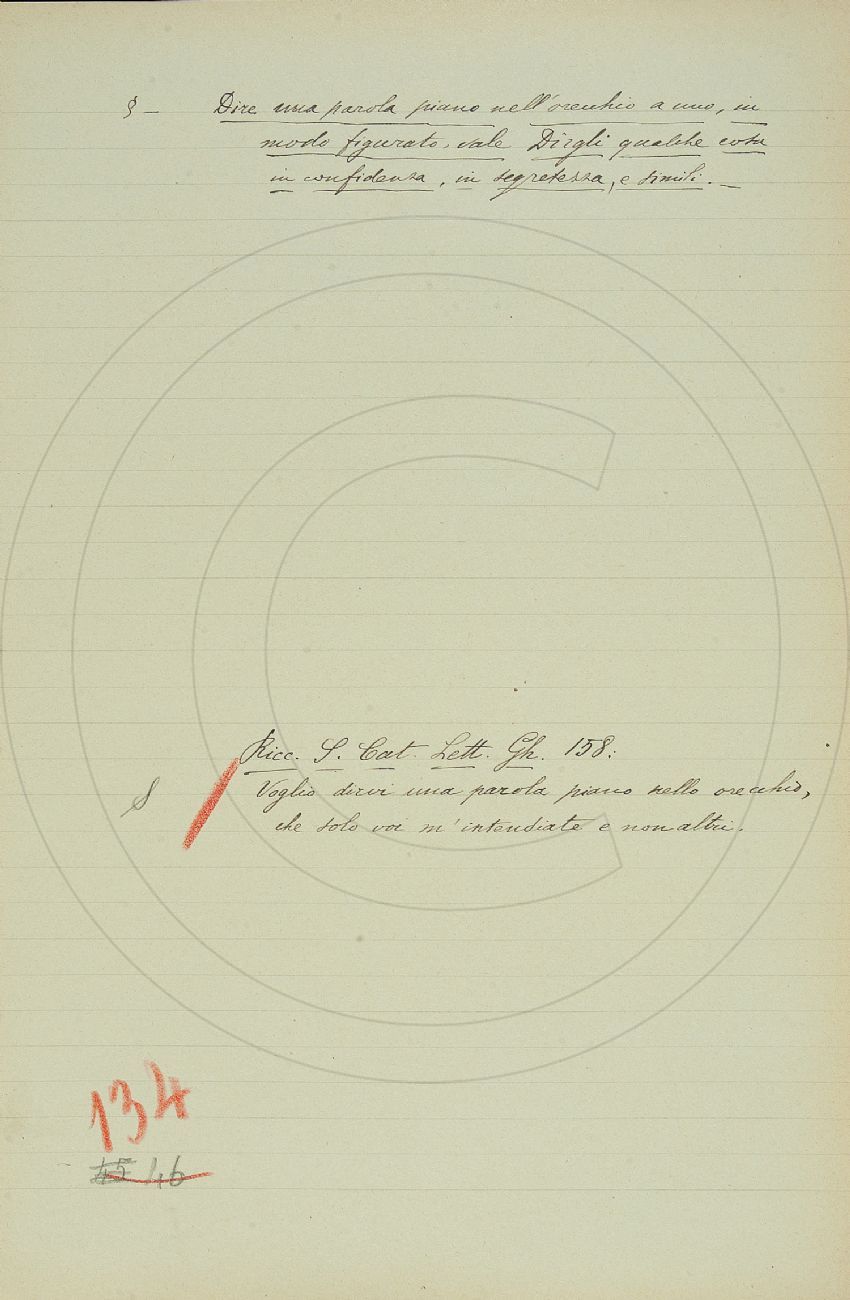 § — Dire una parola piano nell'orecchio a uno, in
modo figurato, vale Dirgli qualche cosa
in confidenza, in segretezza, e simili. —
Ricc. S. Cat. Lett. Gh. 158:
§ Voglio dirvi una parola piano nello orecchio,
che solo voi m'intendiate e non altri.
134
45 46